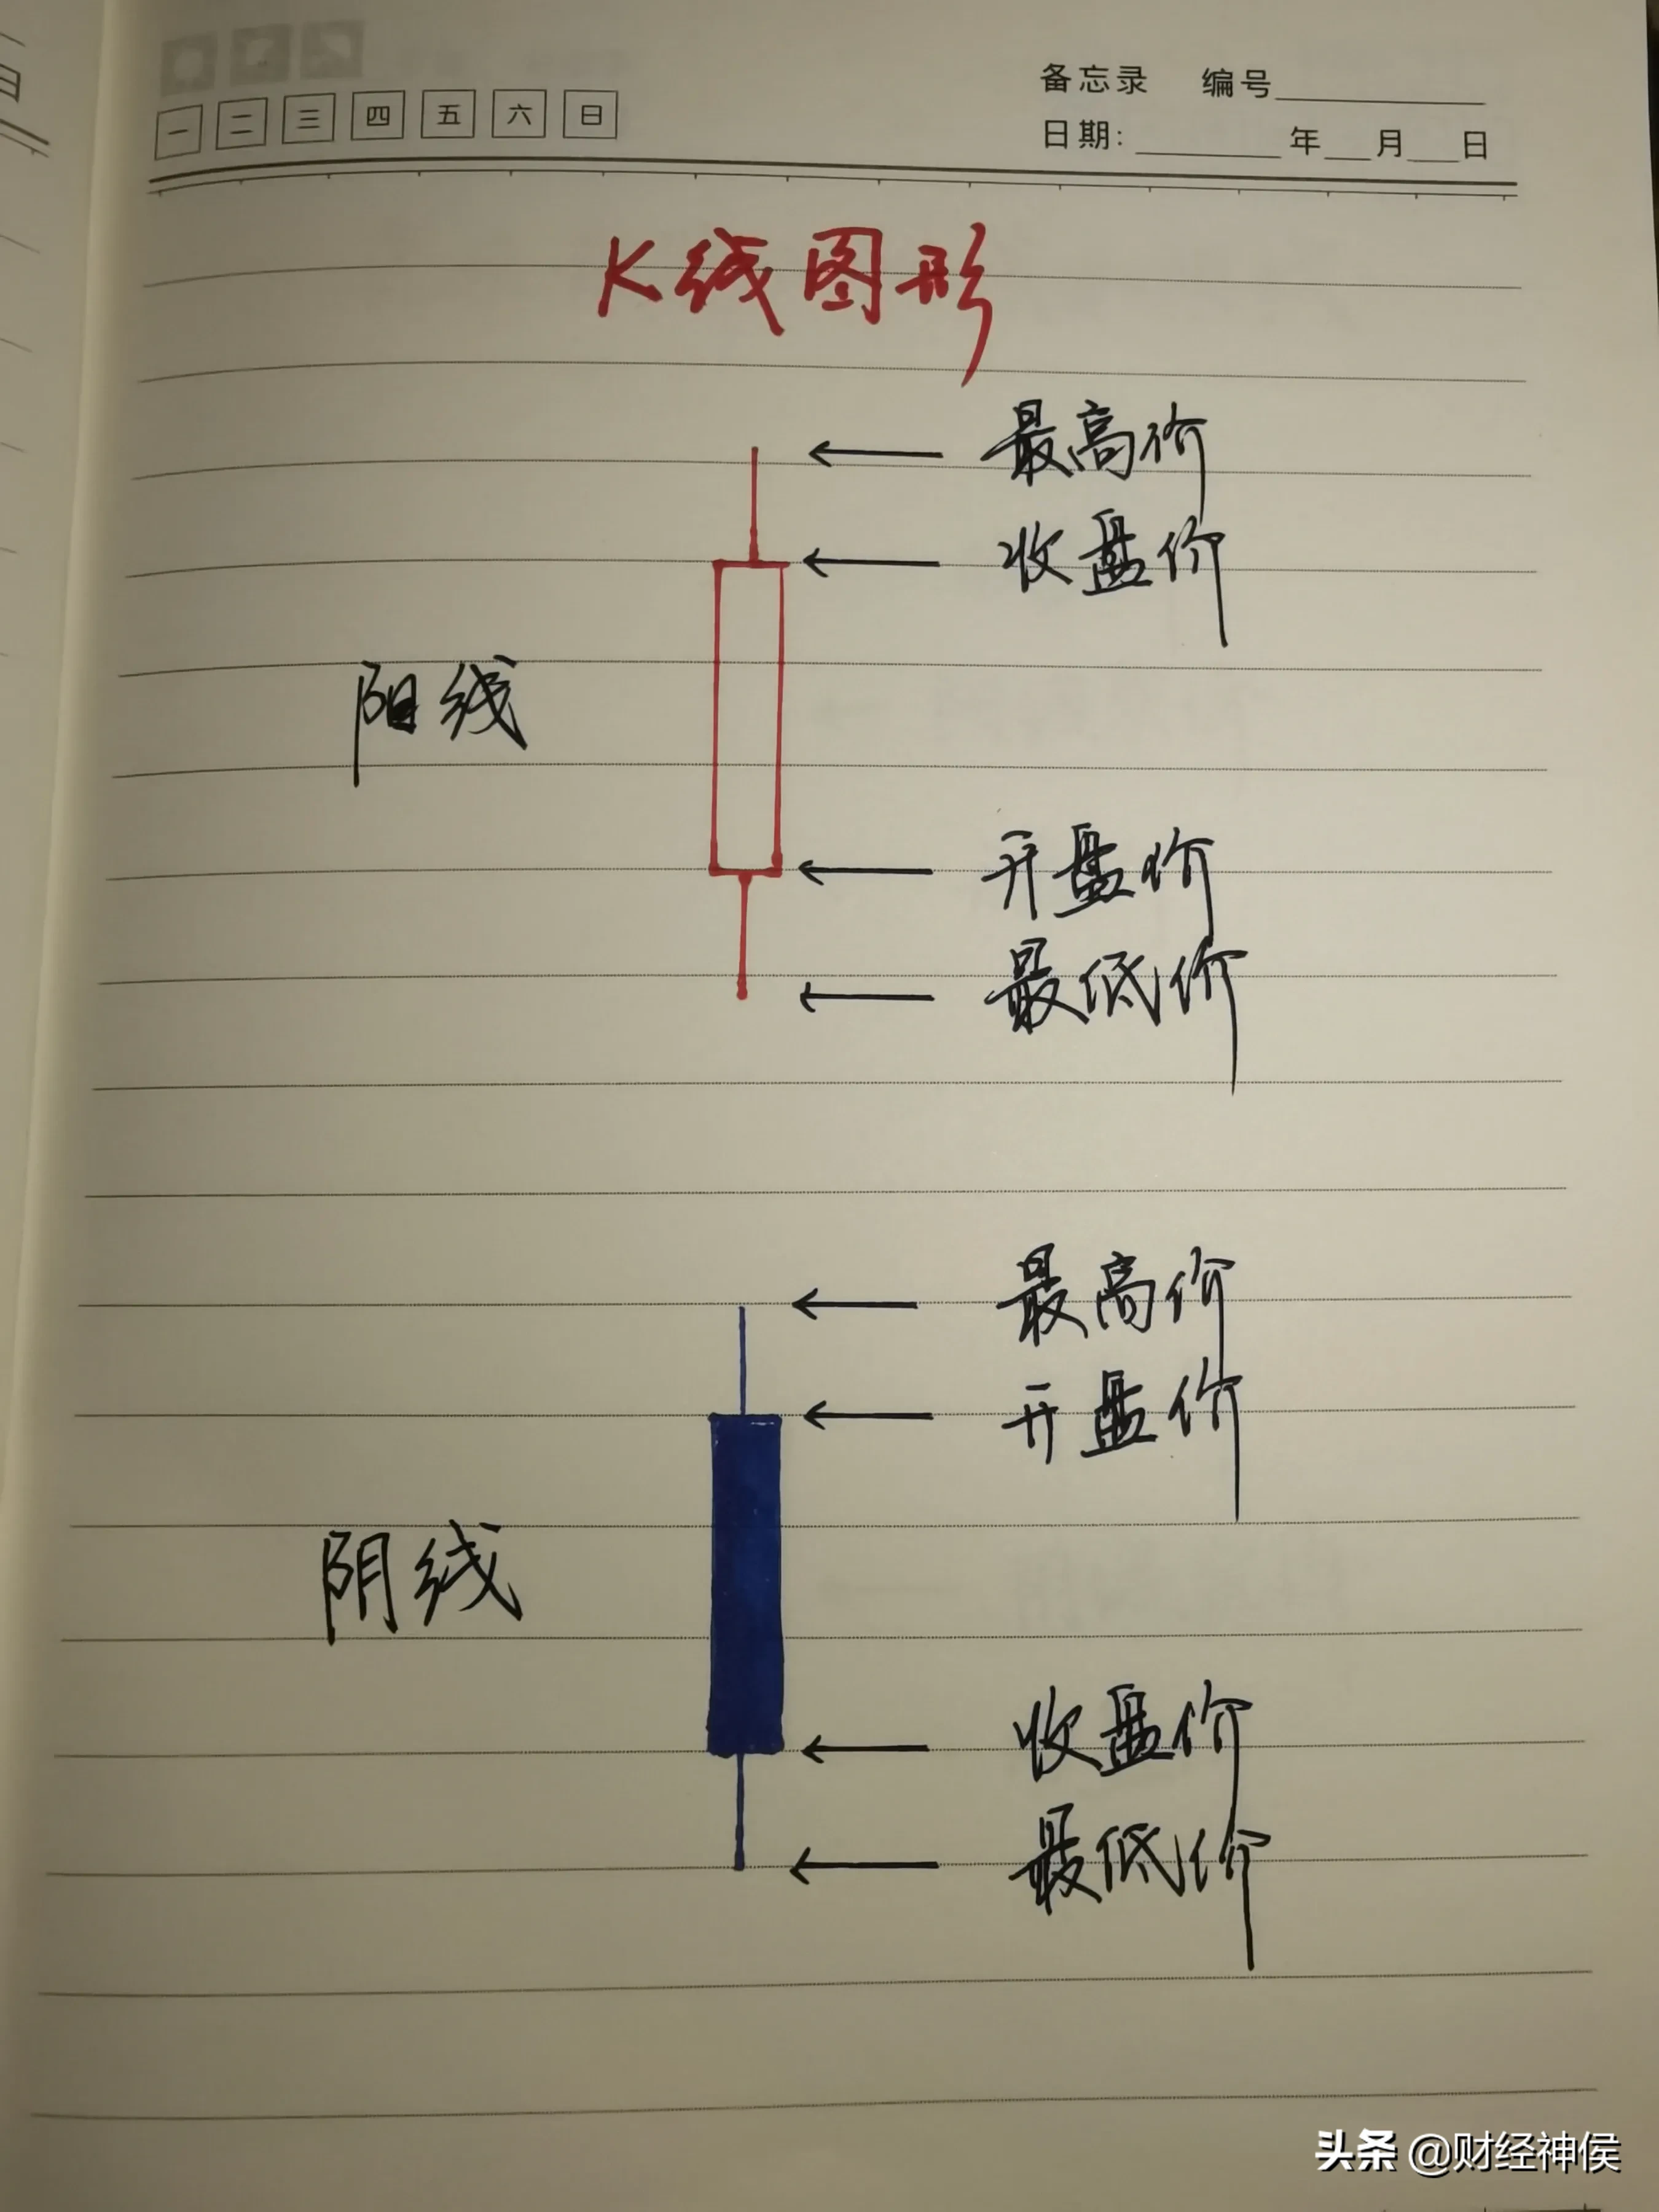 备忘录 编号
一 二 三 四 五 六 日
日期: 年 月 日
K线图形
最高价
收盘价
阳线
开盘价
最低价
最高价
开盘价
阴线
收盘价
最低价
头条 @财经神侯